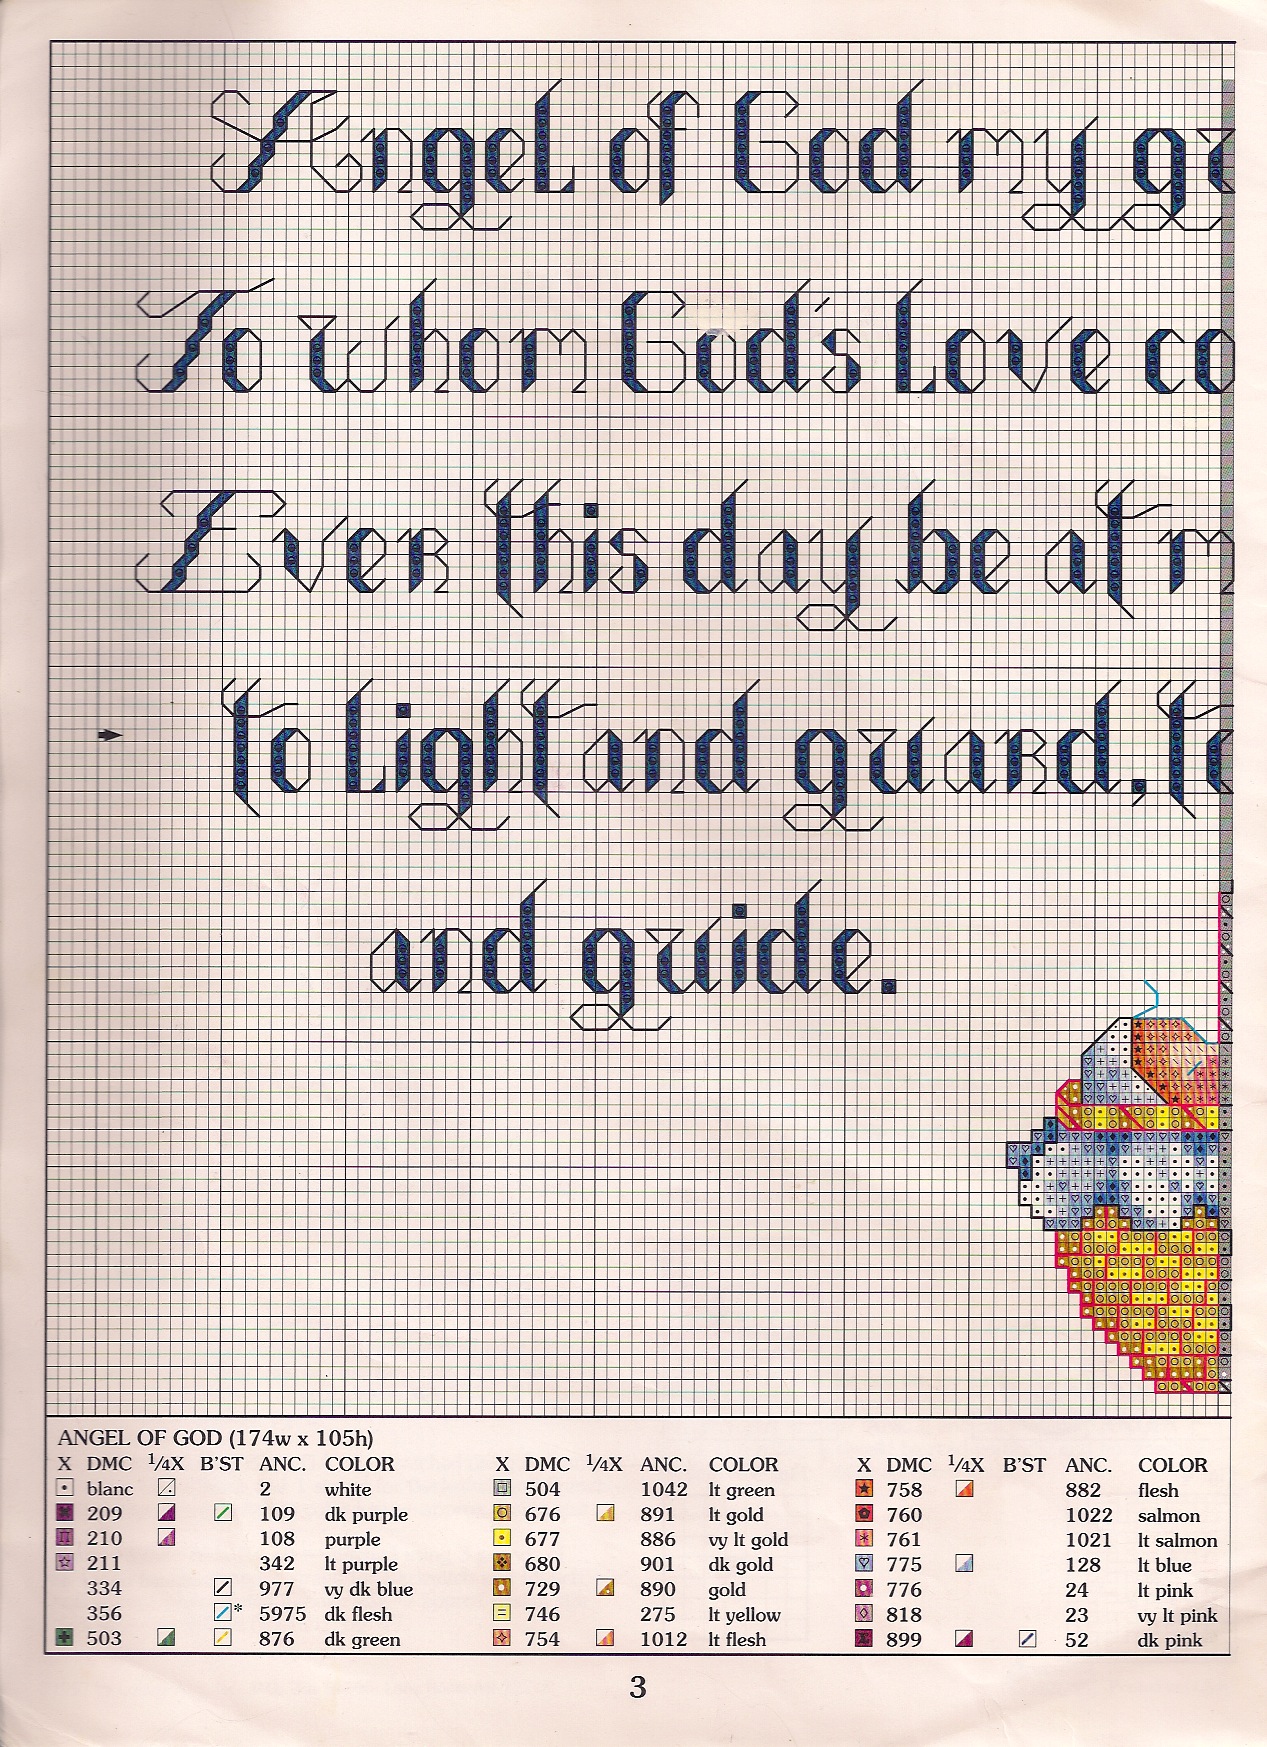 Angel of God my gu
To whom God's Love co
Ever this day be at m
to Light and guard, to
and guide.
ANGEL OF GOD (174w x 105h)
X DMC ¼X B'ST ANC. COLOR X DMC ¼X ANC. COLOR X DMC ¼X B'ST ANC. COLOR
blanc 2 white 504 1042 lt green 758 882 flesh
209 109 dk purple 676 891 lt gold 760 1022 salmon
210 108 purple 677 886 vy lt gold 761 1021 lt salmon
211 342 lt purple 680 901 dk gold 775 128 lt blue
334 977 vy dk blue 729 890 gold 776 24 lt pink
356 * 5975 dk flesh 746 275 lt yellow 818 23 vy lt pink
503 876 dk green 754 1012 lt flesh 899 52 dk pink
3